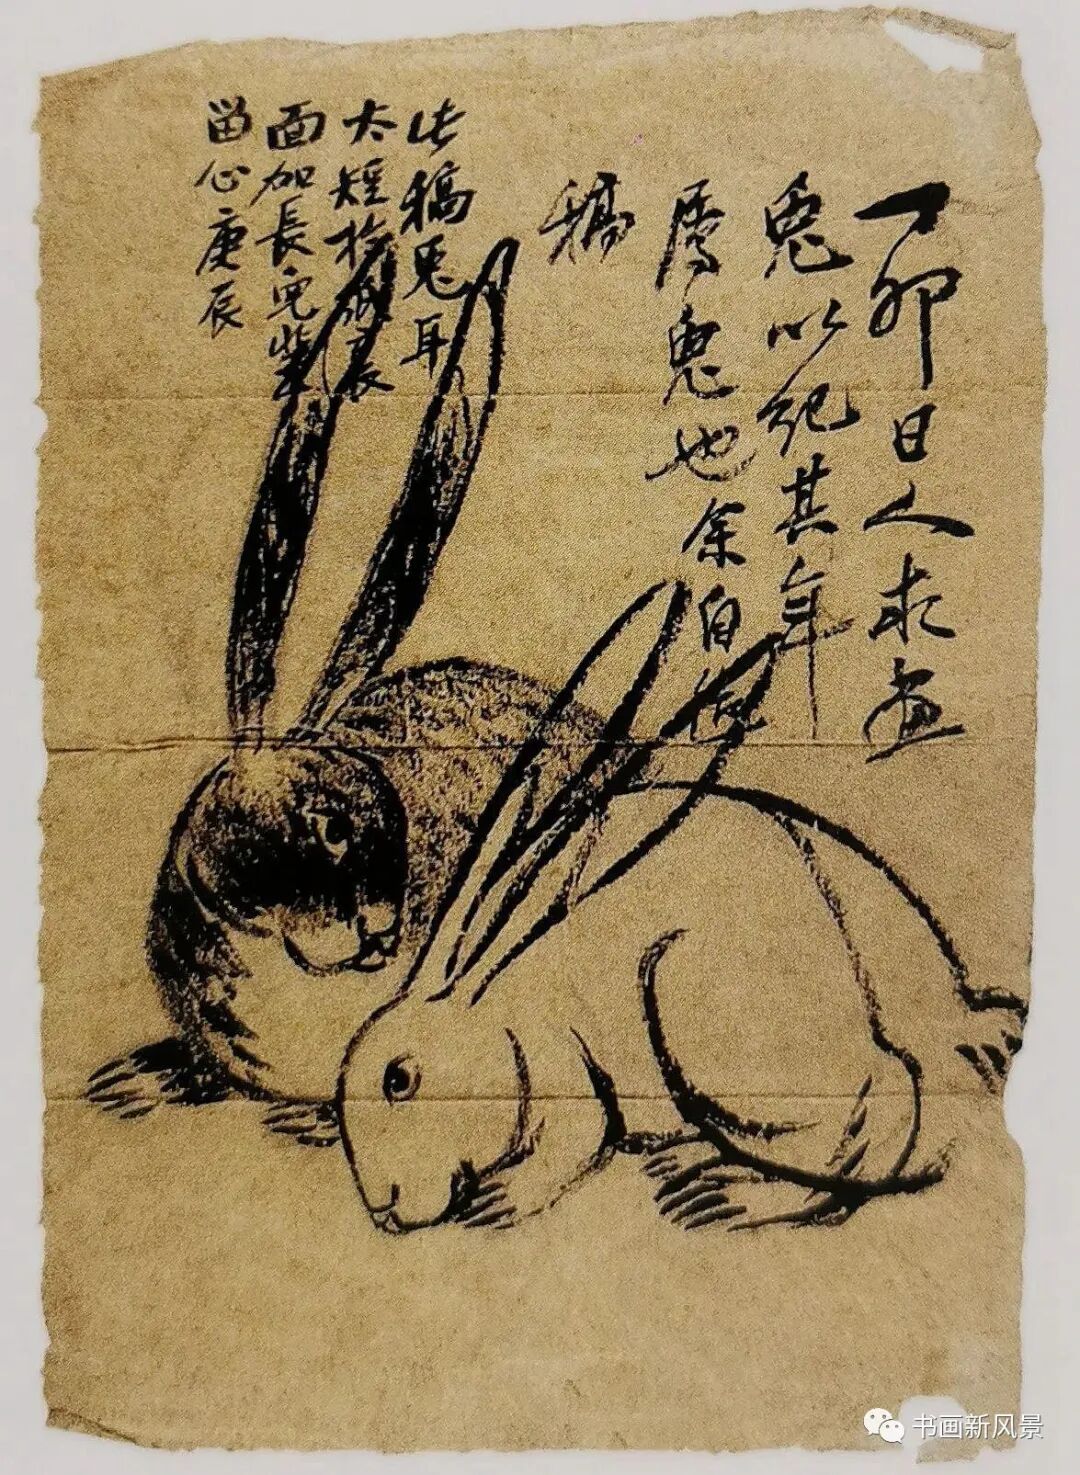 丁卯日人求画
兔以纪其年
属兔也余自
稿
此稿兔耳
太短於纸衣
面加長兔掌
留心庚辰
书画新风景